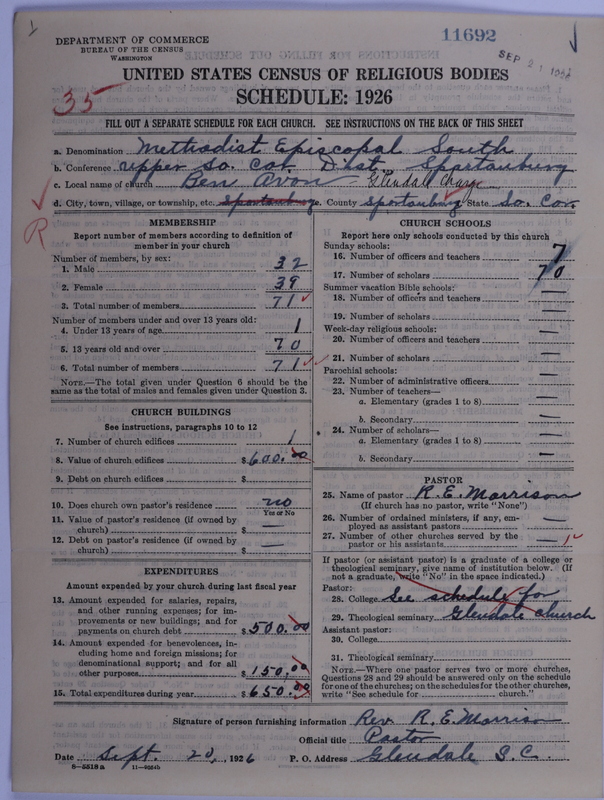 11692
DEPARTMENT OF COMMERCE
BUREAU OF THE CENSUS
WASHINGTON
SEP 21 1926
UNITED STATES CENSUS OF RELIGIOUS BODIES
SCHEDULE: 1926
35
FILL OUT A SEPARATE SCHEDULE FOR EACH CHURCH. SEE INSTRUCTIONS ON THE BACK OF THIS SHEET
a. Denomination Methodist Episcopal South
b. Conference Upper So. Car. Dist. Spartanburg
c. Local name of church Ben Avon - Glendale Charge
d. City, town, village, or township, etc. Spartanburg. County Spartanburg State So. Car.
R
MEMBERSHIP
Report number of members according to definition of
member in your church
Number of members, by sex:
1. Male 32
2. Female 39
3. Total number of members 71
Number of members under and over 13 years old:
4. Under 13 years of age 1
5. 13 years old and over 70
6. Total number of members 71
NOTE.—The total given under Question 6 should be the
same as the total of males and females given under Question 3.
CHURCH BUILDINGS
See instructions, paragraphs 10 to 12
7. Number of church edifices 1
8. Value of church edifices $600.00
9. Debt on church edifices $
10. Does church own pastor's residence no
Yes or No
11. Value of pastor's residence (if owned by
church) $ —
12. Debt on pastor's residence (if owned by
church) $ —
EXPENDITURES
Amount expended by your church during last fiscal year
13. Amount expended for salaries, repairs,
and other running expenses; for im-
provements or new buildings; and for
payments on church debt $500.00
14. Amount expended for benevolences, in-
cluding home and foreign missions; for
denominational support; and for all
other purposes $150.00
15. Total expenditures during year $650.00
CHURCH SCHOOLS
Report here only schools conducted by this church
Sunday schools:
16. Number of officers and teachers 7
17. Number of scholars 70
Summer vacation Bible schools:
18. Number of officers and teachers —
19. Number of scholars —
Week-day religious schools:
20. Number of officers and teachers —
21. Number of scholars —
Parochial schools:
22. Number of administrative officers —
23. Number of teachers—
a. Elementary (grades 1 to 8) —
b. Secondary —
24. Number of scholars—
a. Elementary (grades 1 to 8) —
b. Secondary —
PASTOR
25. Name of pastor R. E. Morrison
(If church has no pastor, write "None")
26. Number of ordained ministers, if any, em-
ployed as assistant pastors —
27. Number of other churches served by the
pastor or his assistants —
If pastor (or assistant pastor) is a graduate of a college or
theological seminary, give name of institution below. (If
not a graduate, write "No" in the space indicated.)
Pastor:
28. College See schedule for
29. Theological seminary Glendale church
Assistant pastor:
30. College
31. Theological seminary
NOTE.—Where one pastor serves two or more churches,
Questions 28 and 29 should be answered only on the schedule
for one of the churches; on the schedules for the other churches,
write "See schedule for church."
Signature of person furnishing information Rev. R. E. Morrison
Official title Pastor
Date Sept. 20, 1926 P. O. Address Glendale S.C.
8—5518a 11—9024b